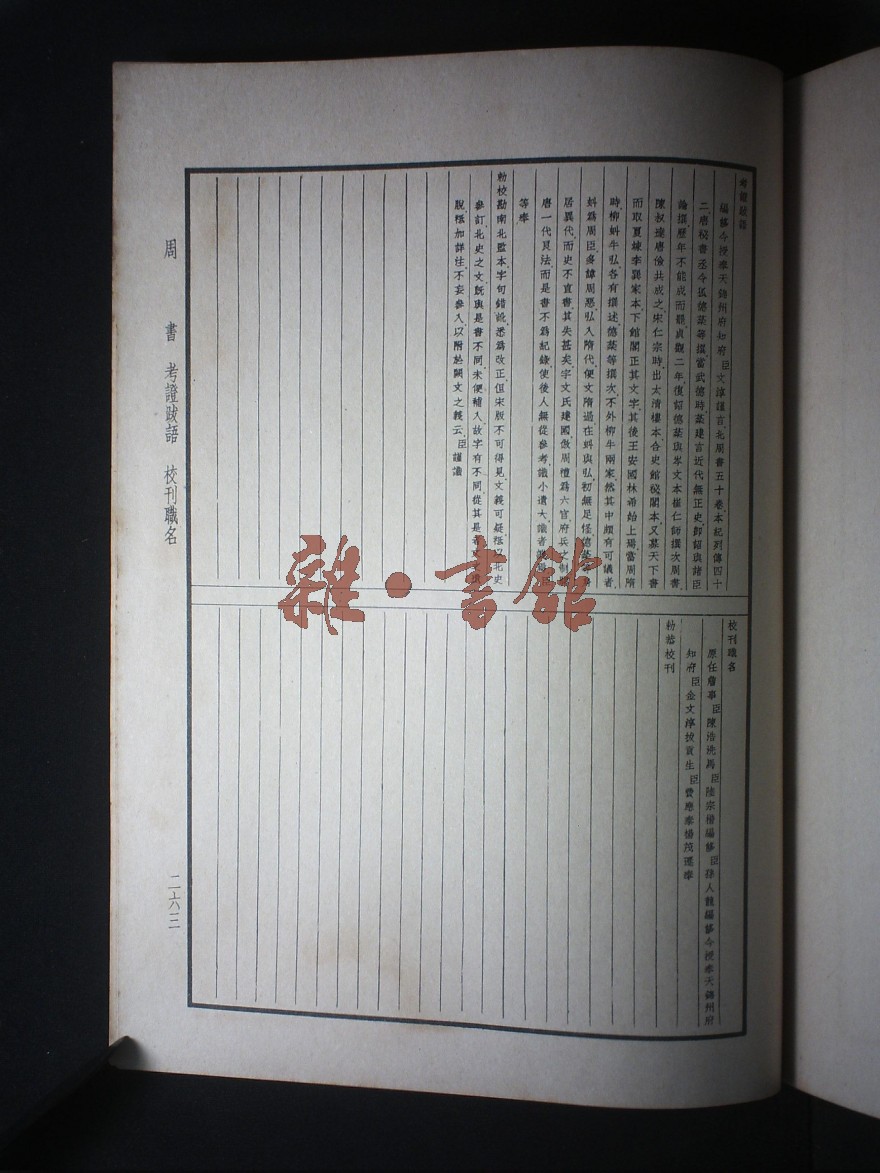 考證跋語
編修今授奉天錦州府知府臣文淳謹言北周書五十卷本紀列傳四十
二唐秘書丞令狐德棻等撰當武德時棻建言近代無正史卽詔與諸臣
論撰歷年不能成而罷貞觀二年復詔德棻與岑文本崔仁師撰次周書
陳叔達唐儉共成之宋仁宗時出太清樓本合史館秘閣本又募天下書
而取夏竦李巽家本下館閣正其文字其後王安國林希始上焉當周隋
時柳蚪牛弘各有撰述德棻等撰次不外柳牛兩家然其中頗有可議者
蚪爲周臣多諱周惡弘入隋代便文隋過在蚪與弘初無足怪德棻等
居異代而史不直書其失甚矣宇文氏建國倣周禮爲六官府兵之制
唐一代良法而是書不爲紀錄使後人無從參考識小遺大識者
等奉
勅校勘南北監本字句錯訛悉爲改正但宋版不可得見文義可疑祗以北史
參訂北史之文旣與是書不同未便補入故字有不同從其是
脫祗加詳注不妄參入以附於闕文之義云臣謹識
校刊職名
原任詹事臣陳浩洗馬臣陸宗楷編修臣孫人龍編修今授奉天錦州府
知府臣金文淳拔貢生臣費應泰楊茂遷奉
勅恭校刊
周書 考證跋語 校刊職名
二六三
雜·書館